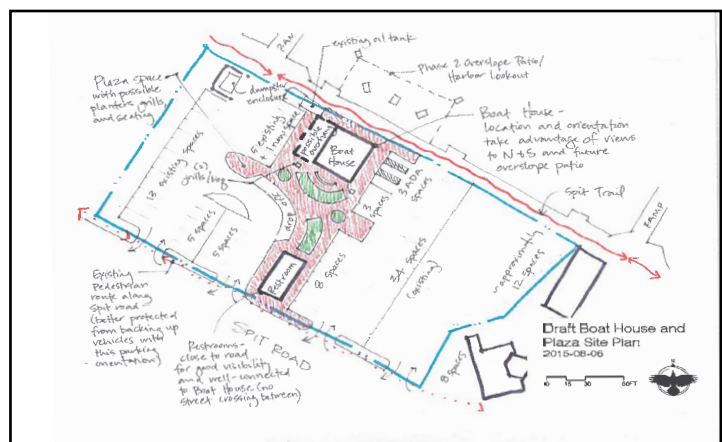 existing oil tank
Phase 2 Overslope Patio/
Harbor Lookout
Plaza space
with possible
planters, grills,
and seating
dumpster
enclosure
Boat House -
location and orientation
take advantage of views
to N+S and future
overslope patio
5 existing
+ 1 new space
possible
overhang
Boat
House
13 existing spaces
(2)
grills/bbq
3 ADA
spaces
3
spaces
Spit Trail
RAMP
5 spaces
5 spaces
drop
8 spaces
34 spaces
(existing)
approximately
12 spaces
Restroom
Existing
Pedestrian
route along
spit road
(better protected
from backing up
vehicles with
this parking
orientation)
SPIT ROAD
Restrooms-
close to road
for good visibility
and well-connected
to Boat House (no
street crossing between)
8 spaces
Draft Boat House and
Plaza Site Plan
2015-08-06
0 15 30 60FT